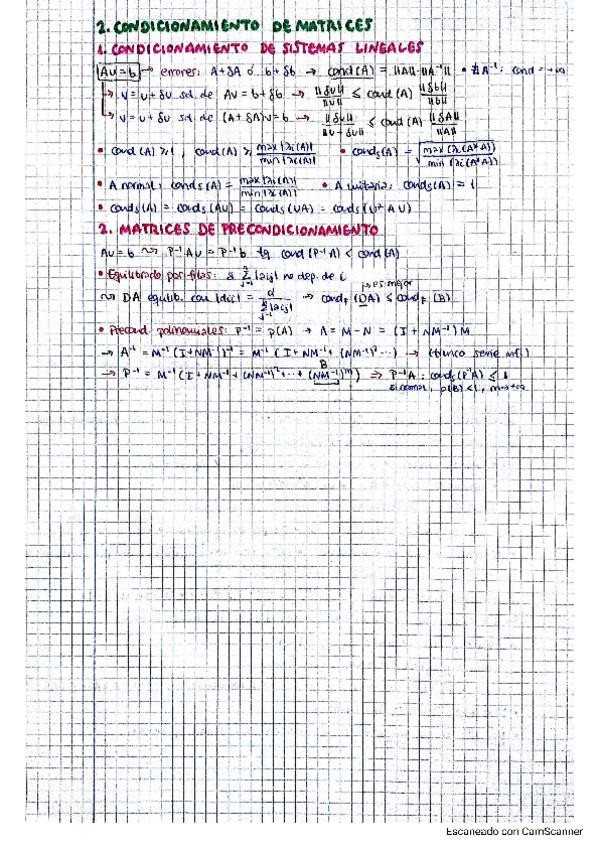 2. CONDICIONAMIENTO DE MATRICES
1. CONDICIONAMIENTO DE SISTEMAS LINEALES
Au = b → errores: A+δA ó b+δb → cond(A) = ||A||·||A⁻¹|| • ∄A⁻¹: cond = +∞
→ v = u + δu sol. de Av = b + δb → ||δu||/||u|| ≤ cond(A) ||δb||/||b||
→ v = u + δu sol. de (A + δA)v = b → ||δu||/||u + δu|| ≤ cond(A) ||δA||/||A||
• cond(A) ≥ 1, cond(A) ≥ max|λi(A)|/min|λi(A)| • cond₂(A) = √(max λi(A*A)/min λi(A*A))
• A normal: cond₂(A) = max|λi(A)|/min|λi(A)| • A unitaria: cond₂(A) = 1
• cond₂(A) = cond₂(AU) = cond₂(UA) = cond₂(U*AU)
2. MATRICES DE PRECONDICIONAMIENTO
Au = b ⇝ P⁻¹Au = P⁻¹b tq cond(P⁻¹A) < cond(A)
• Equilibrado por filas: si Σ|aij| no dep. de i
→ es mejor
⇝ DA equilib. con |dii| = α/Σ|aij| → cond (DA) ≤ cond (B)
• Precond. polinomiales: P⁻¹ = p(A) → A = M − N = (I + NM⁻¹)M
→ A⁻¹ = M⁻¹(I + NM⁻¹)⁻¹ = M⁻¹(I + NM⁻¹ + (NM⁻¹)²...) → (trunco serie inf.)
B
→ P⁻¹ = M⁻¹(I + NM⁻¹ + (NM⁻¹)² + ... + (NM⁻¹)ᵐ) ⇒ P⁻¹A: cond₂(P⁻¹A) ≤ 1
si normal, ρ(B) < 1, m→+∞
Escaneado con CamScanner